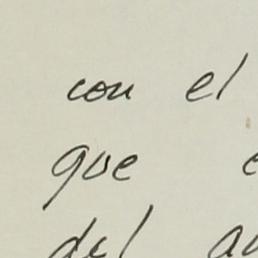 con el
que
del